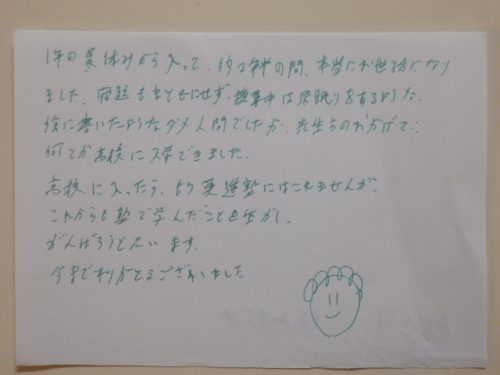 1年の夏休みから入って、約2年半の間、本当にお世話になり
ました。宿題もまともにせず、授業中は居眠りをするような、
絵に書いたようなダメ人間でしたが、先生方のおかげで、
何とか高校に入学できました。
高校に入ったら、もう英進塾にはこれませんが、
これからも塾で学んだことを生かし、
がんばろうと思います。
今までありがとうございました